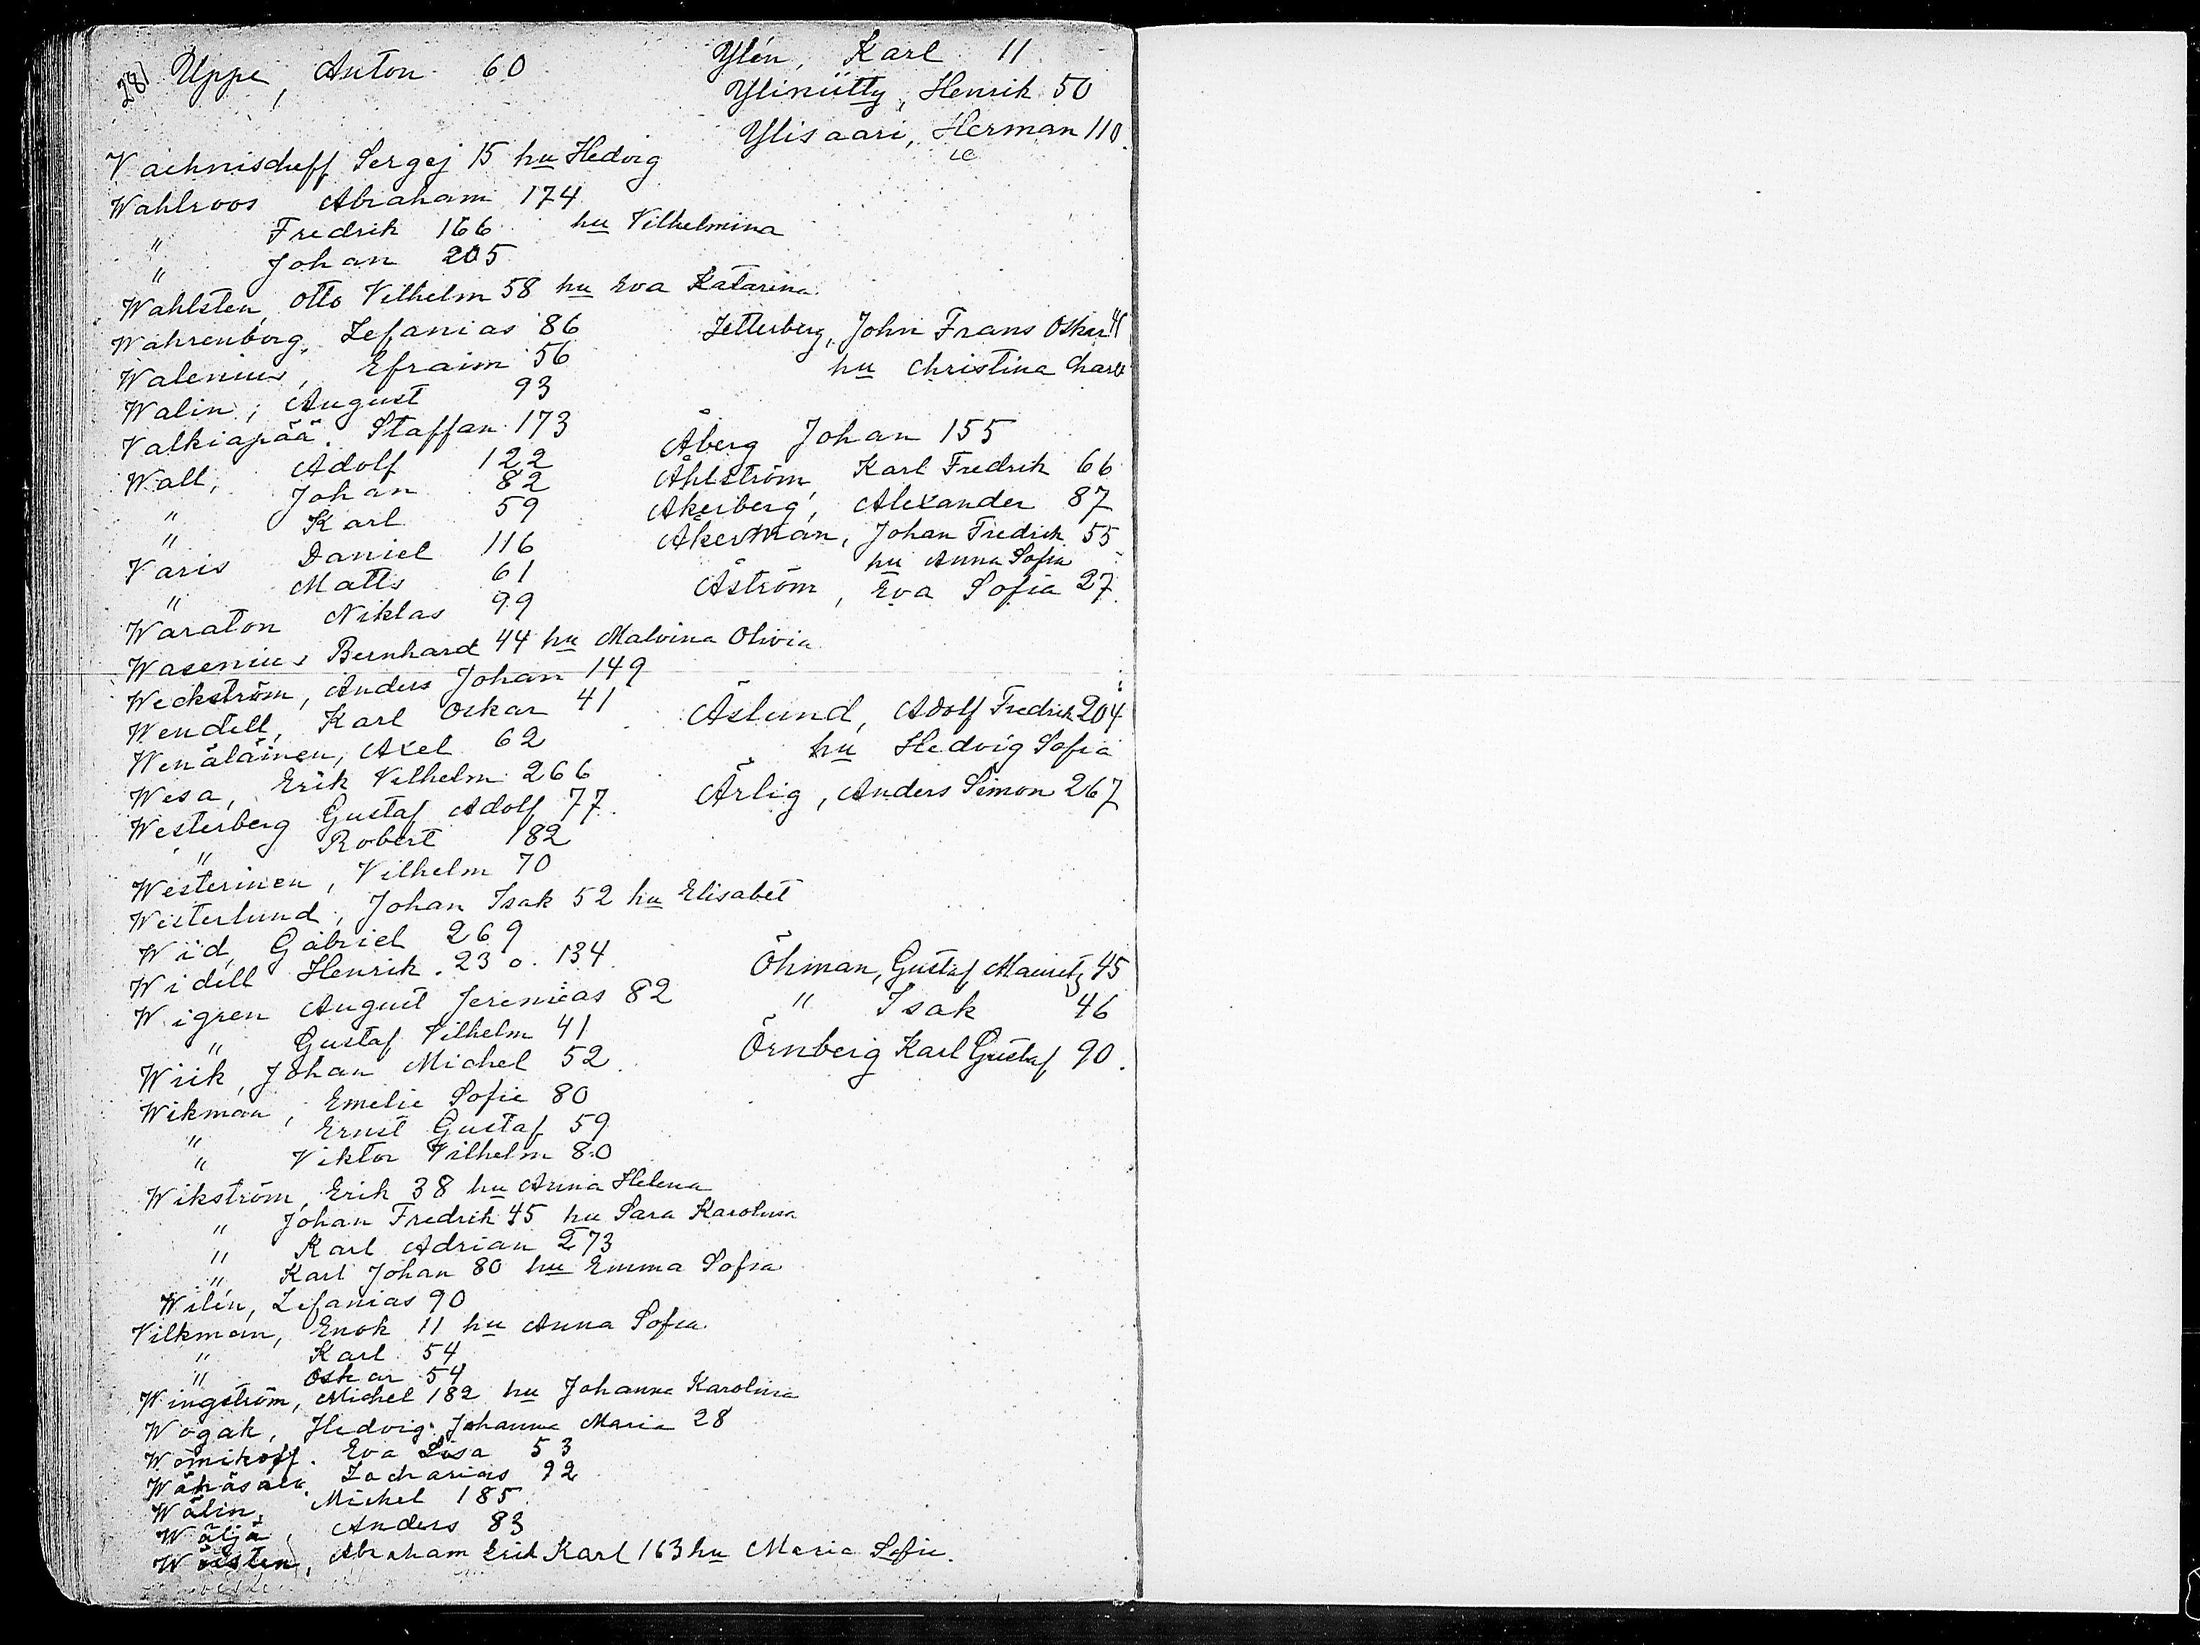 281
Uppe, Anton 60
Vachnischeff Sergej 15 hu Hedvig
Wahlroos Abraham 174
" Fredrik 166 hu Vilhelmina
" Johan 205
Wahlsten, Otto Vilhelm 58 hu Eva Katarina
Wahrenborg, Zefanias 86
Walenius, Efraim 56
Walin, August 93
Valkiapää. Staffan 173
Wall, Adolf 122
" Johan 82
" Karl 59
Varis Daniel 116
" Matts 61
Waraton Niklas 99
Wasenius Bernhard 44 hu Malvina Olivia
Weckström, Anders Johan 149
Wendell, Karl Oskar 41
Wenäläinen, Axel 62
Wesa, Erik Vilhelm 266
Westerberg Gustaf Adolf 77
" Robert 182
Westerinen, Vilhelm 70
Westerlund, Johan Isak 52 hu Elisabet
Wid, Gabriel 269
Widell Henrik. 23 o. 134
Wigren August Jeremias 82
" Gustaf Vilhelm 41
Wiik, Johan Michel 52
Wikman, Emelie Sofie 80
" Ernst Gustaf 59
" Viktor Vilhelm 80
Wikström, Erik 38 hu Anna Helena
" Johan Fredrik 45 hu Sara Karolina
" Karl Adrian 273
" Karl Johan 80 hu Emma Sofia
Wilén, Zefanias 90
Vilkman, Enok 11 hu Anna Sofia
" Karl 54
" Oskar 54
Wingström, Michel 182 hu Johanna Karolina
Wogak, Hedvig Johanna Maria 28
Womikoff. Eva Lisa 53
Wähäsalo Zacharias 92
Wälin, Michel 185
Wäljä, Anders 83
Abraham Erik Karl 163 hu Maria Sofie.
Ylén, Karl 11
Yliniitty, Henrik 50
Ylisaari, Herman 110
Zetterberg, John Frans Oskar 41
hu Christina Charl
Åberg Johan 155
Åhlström, Karl Fredrik 66
Åkerberg, Alexander 87
Åkerman, Johan Fredrik 55
hu Anna Sofia
Åström, Eva Sofia 27
Äslund, Adolf Fredrik 204
hu Hedvig Sofia
Ärlig, Anders Simon 267
Öhman, Gustaf Mauritz 45
" Isak 46
Örnberg Karl Gustaf 90.